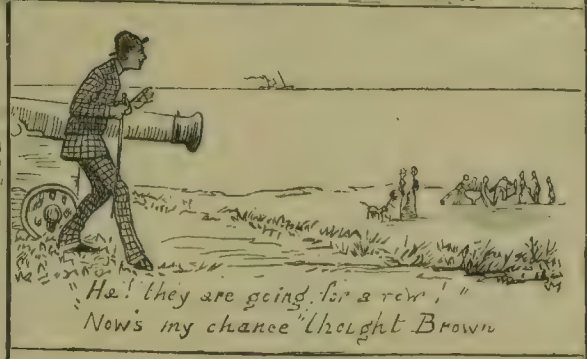 "Ha! they are going for a row!"
Now's my chance" thought Brown